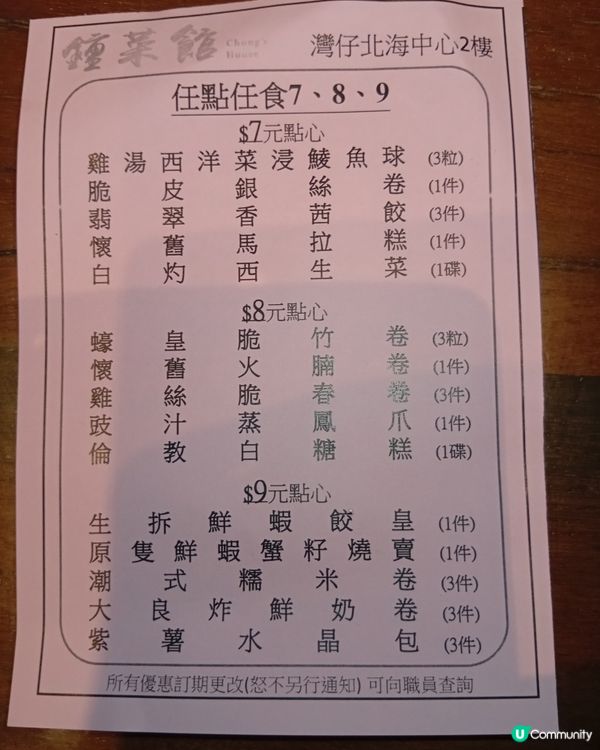 鐘菜館 Chung's House 灣仔北海中心2樓
任點任食7、8、9
$7元點心
雞湯西洋菜浸鯪魚球 (3粒)
脆皮銀絲卷 (1件)
翡翠香茜餃 (3件)
懷舊馬拉糕 (1件)
白灼西生菜 (1碟)
$8元點心
蠔皇脆竹卷 (3粒)
懷舊火腩卷 (1件)
雞絲脆春卷 (3件)
豉汁蒸鳳爪 (1件)
倫教白糖糕 (1碟)
$9元點心
生拆鮮蝦餃皇 (1件)
原隻鮮蝦蟹籽燒賣 (1件)
潮式糯米卷 (3件)
大良炸鮮奶卷 (3件)
紫薯水晶包 (3件)
所有優惠訂期更改(怒不另行通知) 可向職員查詢
U Community